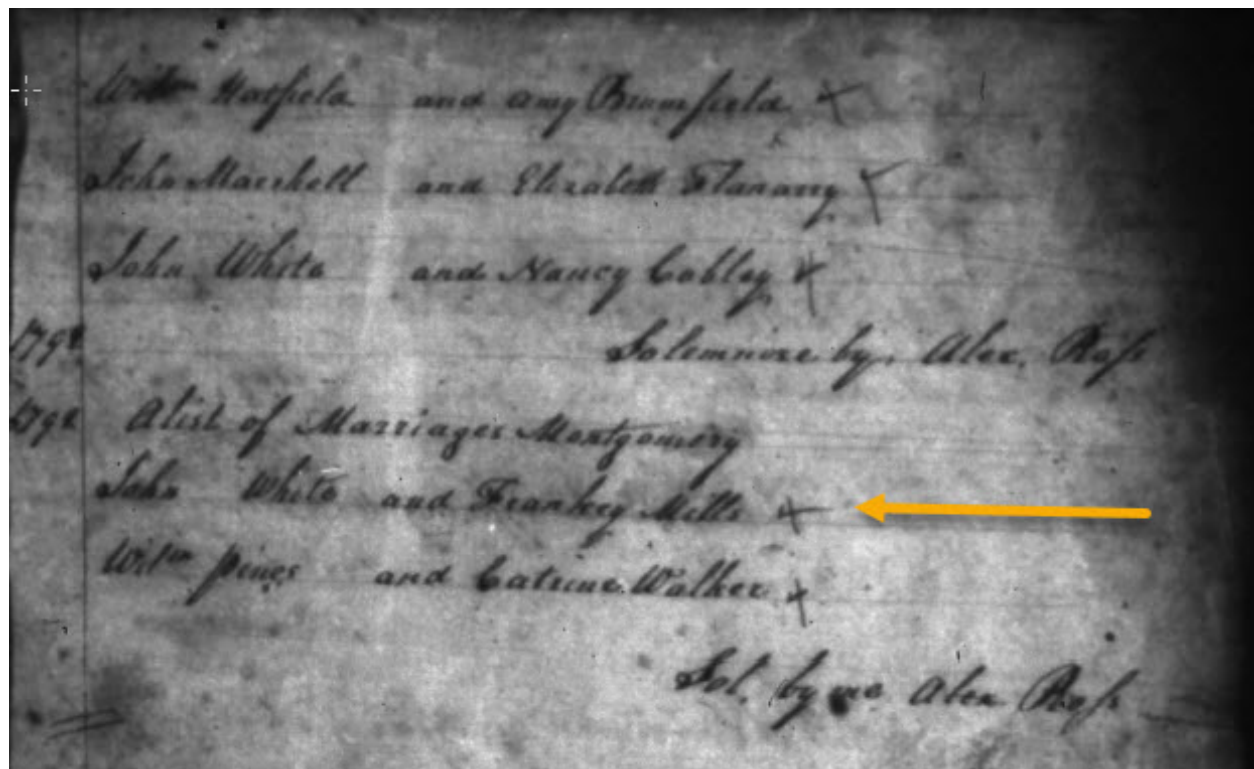 Willm Hatfield and Amy Brumfield
John Marshell and Elizabeth Flanarry
John White and Nancy Cobley
1792 Solemnize by Alex. Ross
1792 A list of Marriages Montgomery
John White and Frankey Mills
Willm pines and Catrine Walker
Sol. by me Alex Ross